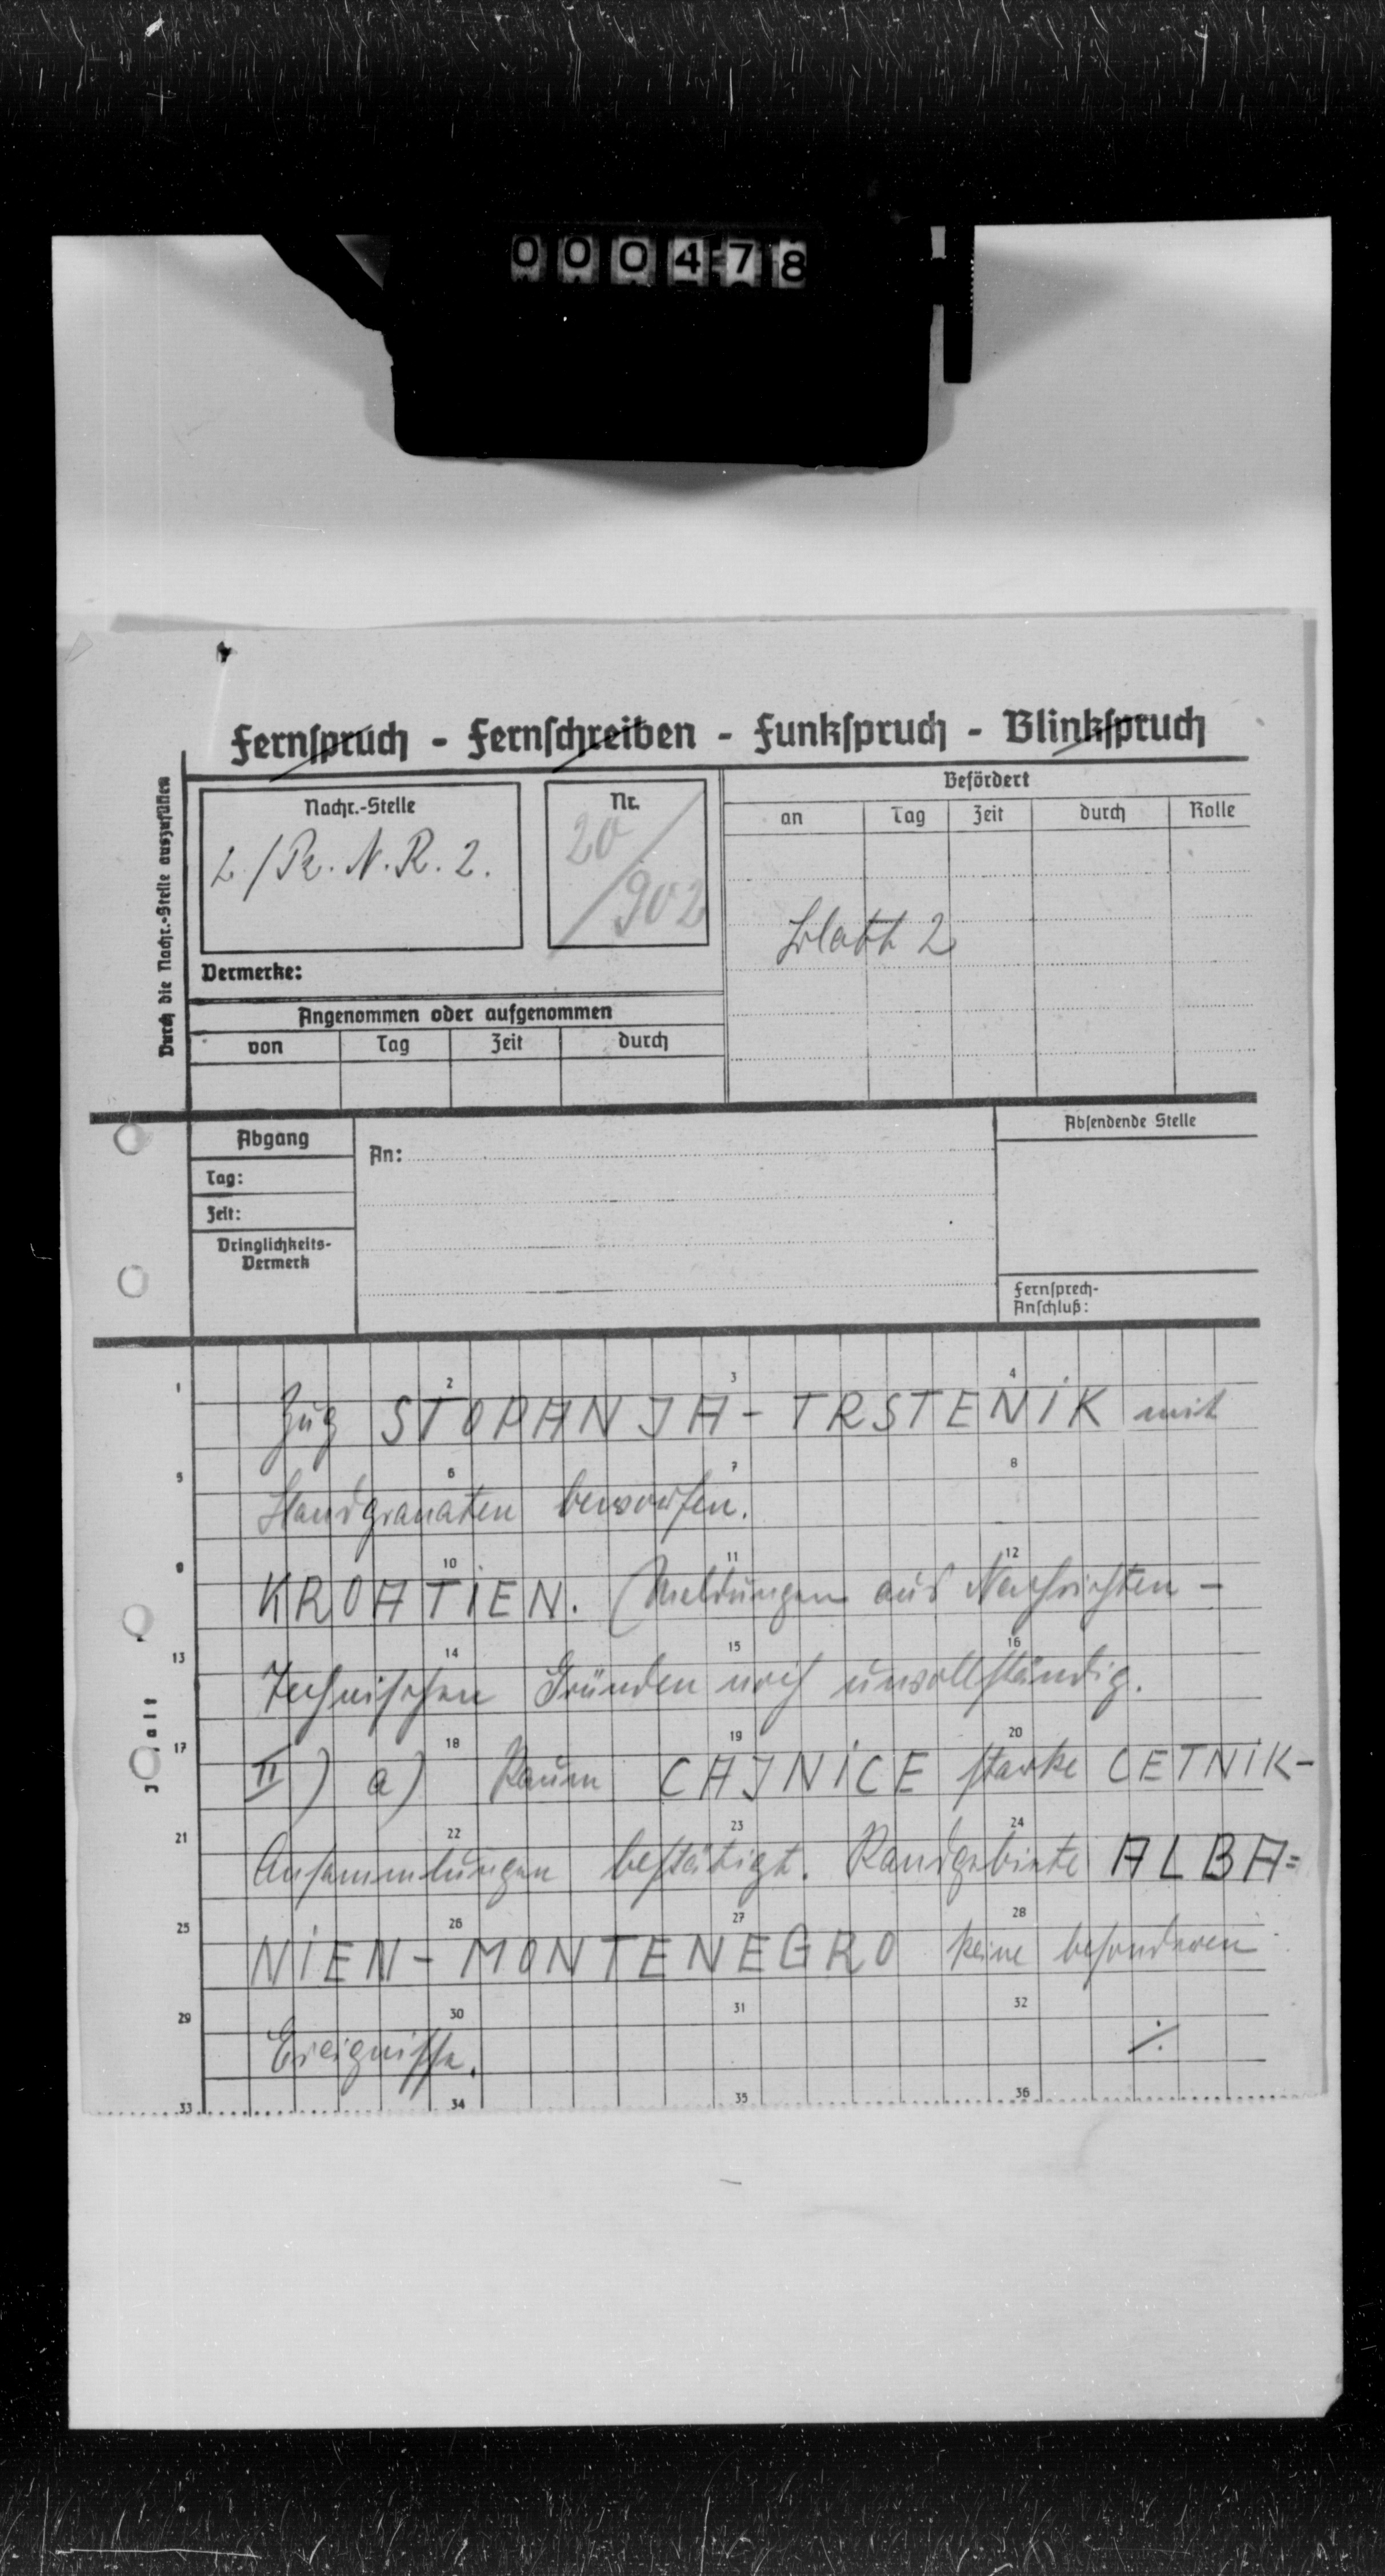 000478
Fernspruch - Fernschreiben - Funkspruch - Blinkspruch
Durch die Nachr.-Stelle auszufüllen
Nachr.-Stelle
2./Pz. N. R. 2.
Nr.
20/902
Befördert
an Tag Zeit durch Rolle
Blatt 2
Vermerke:
Angenommen oder aufgenommen
von Tag Zeit durch
Abgang
Tag:
Zeit:
Dringlichkeits-
Vermerk
An:
Absendende Stelle
Fernsprech-
Anschluß:
1 2 3 4
Zug STOPANJA - TRSTENIK mit
5 6 7 8
Handgranaten beworfen.
9 10 11 12
KROATIEN. (Meldungen aus Nachrichten-
13 14 15 16
Technischen Gründen noch unvollständig.
17 18 19 20
II) a) Raum CAJNICE starke CETNIK-
21 22 23 24
Ansammlungen bestätigt. Randgebiete ALBA=
25 26 27 28
NIEN - MONTENEGRO keine besonderen
29 30 31 32
Ereignisse. ./.
33 34 35 36